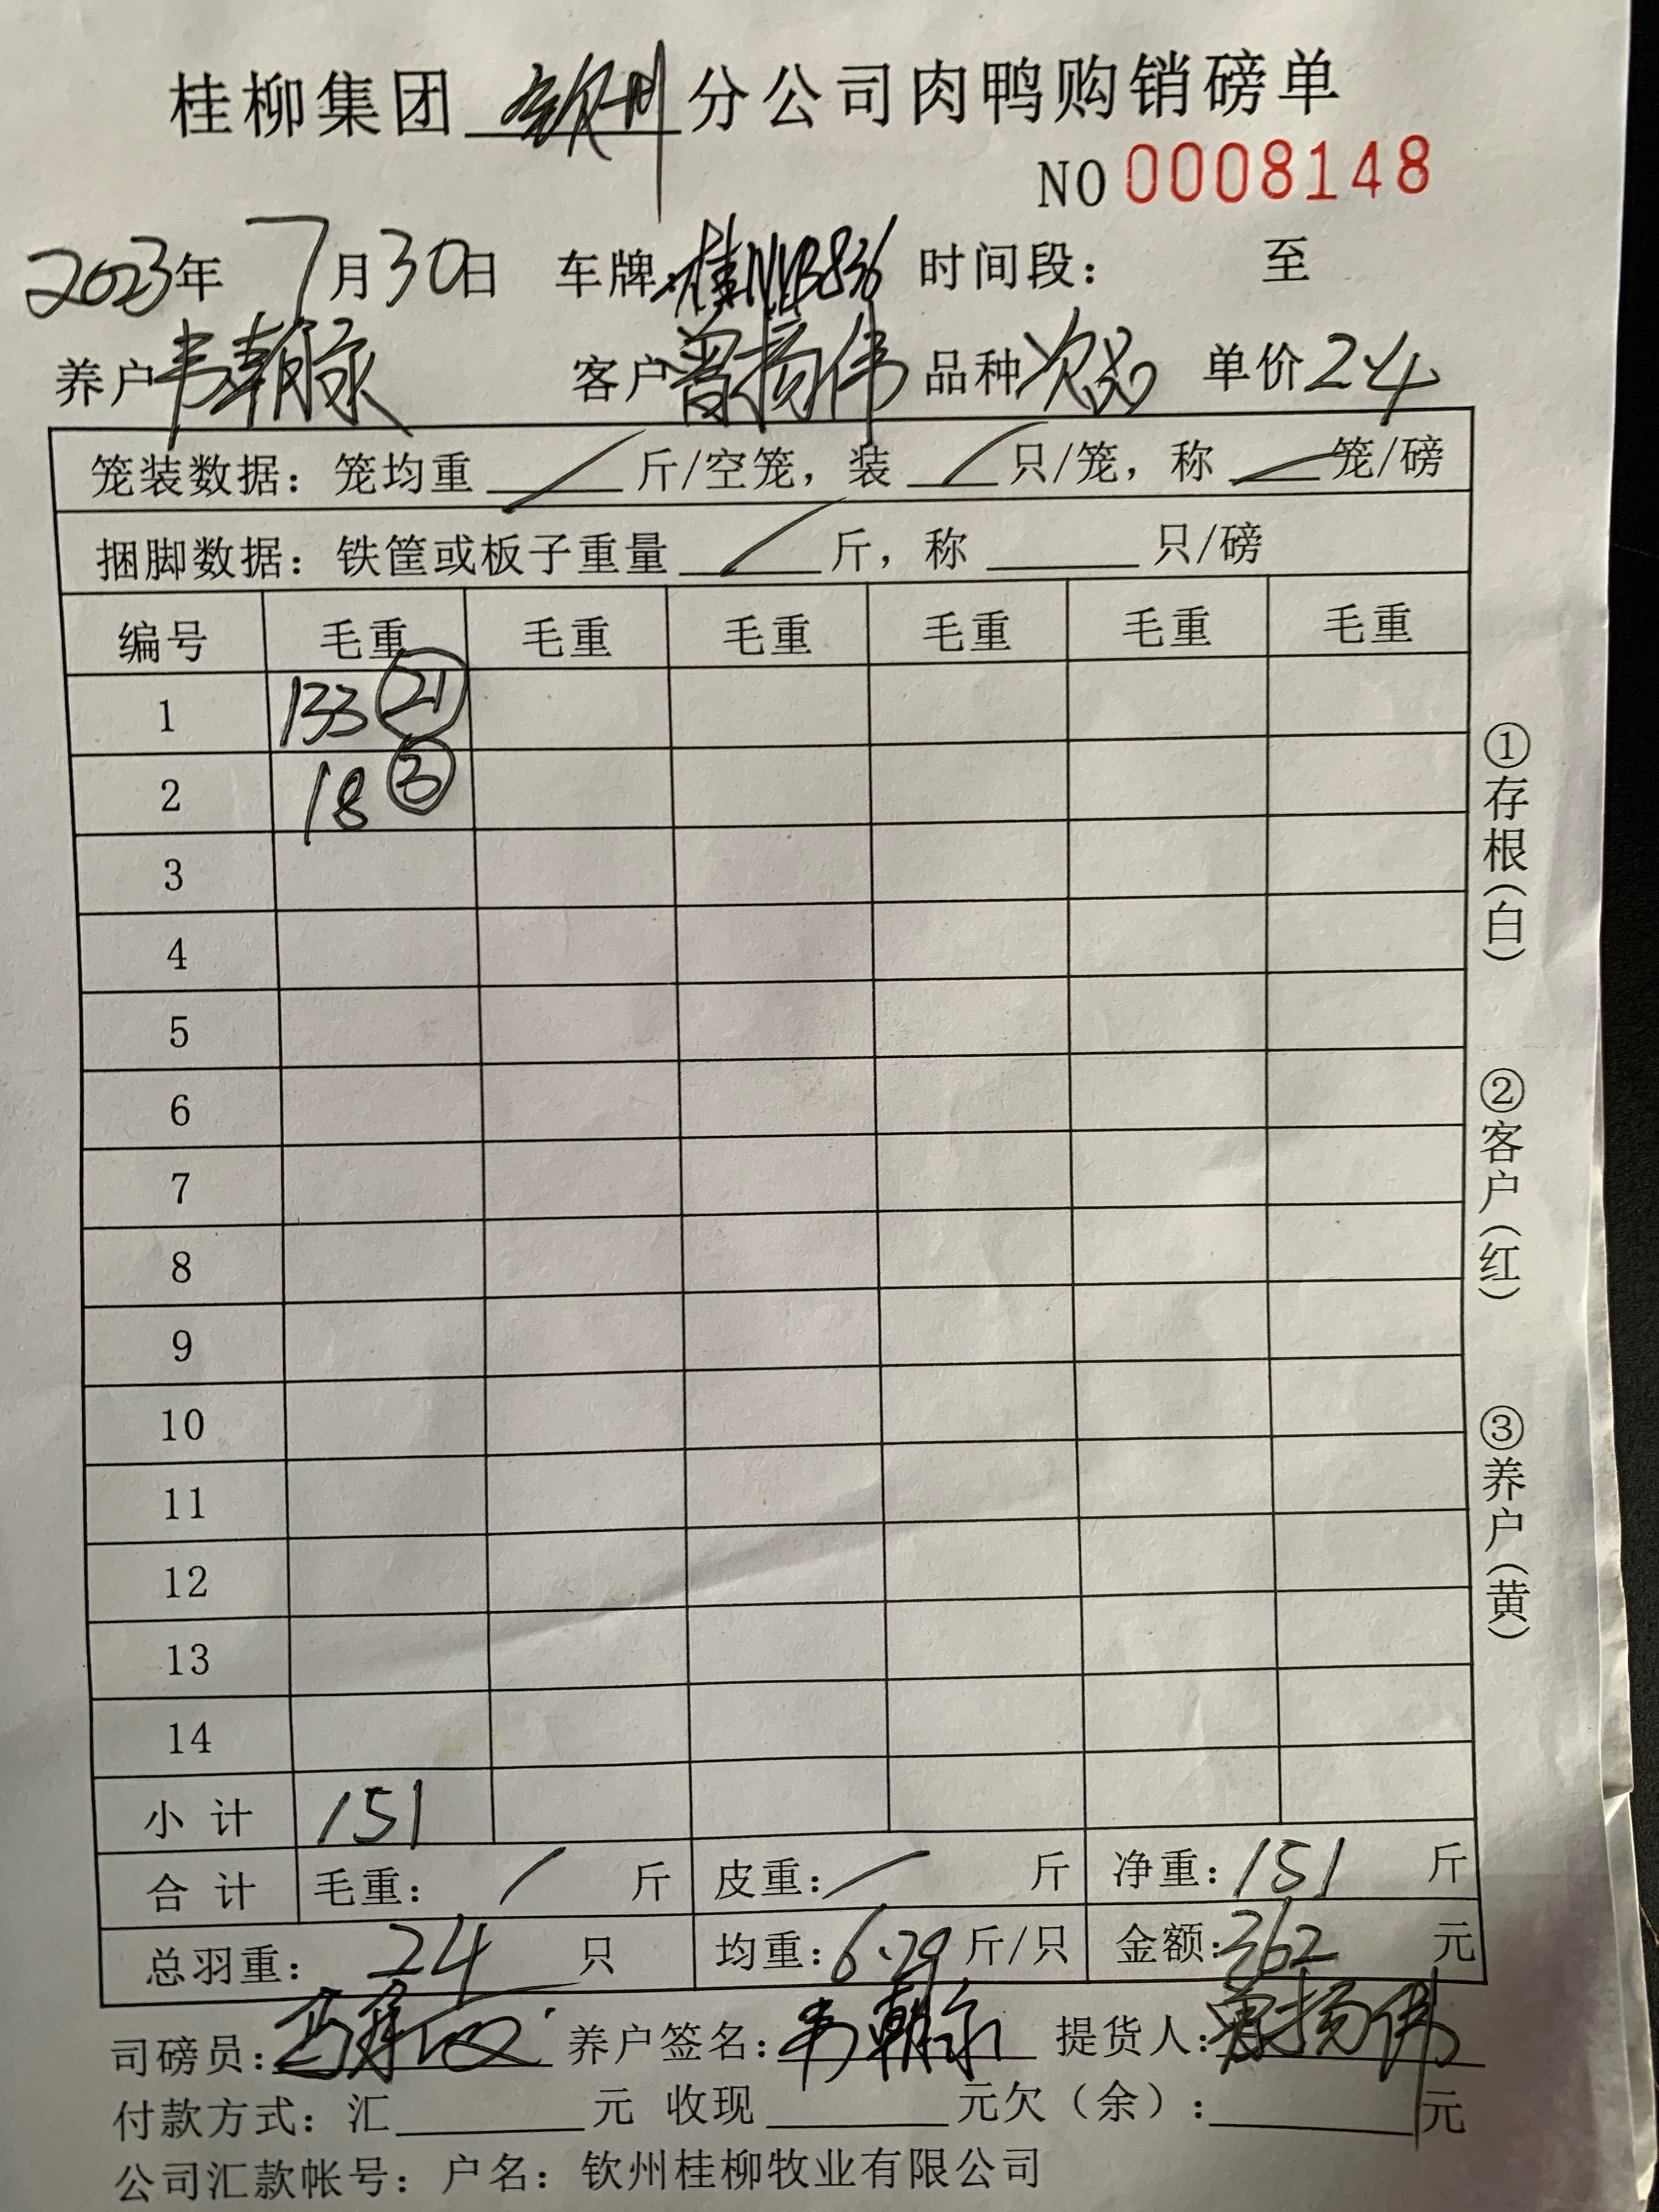 桂柳集团 钦州 分公司肉鸭购销磅单
NO 0008148
2023年 7月30日 车牌: 桂NVB836 时间段: 至
养户 韦朝永 客户 曾扬伟 品种 次品 单价 2.4
笼装数据: 笼均重 / 斤/空笼, 装 / 只/笼, 称 / 笼/磅
捆脚数据: 铁筐或板子重量 / 斤, 称 只/磅
编号 毛重 毛重 毛重 毛重 毛重 毛重
1 133 ㉑
2 18 ③
3
4
5
6
7
8
9
10
11
12
13
14
小计 151
合计 毛重: / 斤 皮重: / 斤 净重: 151 斤
总羽重: 24 只 均重: 6.29 斤/只 金额: 362 元
司磅员: 养户签名: 韦朝永 提货人: 曾扬伟
付款方式: 汇 元 收现 元欠(余): 元
公司汇款帐号: 户名: 钦州桂柳牧业有限公司
①存根(白)
②客户(红)
③养户(黄)